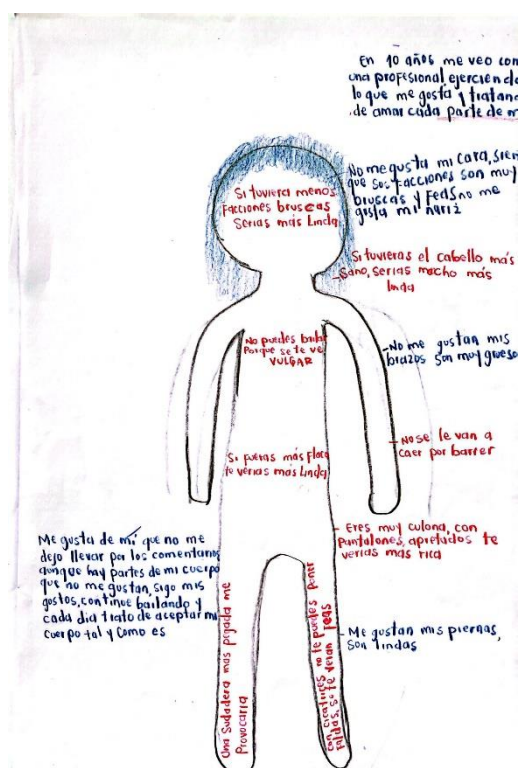 En 10 años me veo com
una profesional ejerciendo
lo que me gusta y tratand
de amar cada parte de m
No me gusta mi cara, sien
que sus facciones son muy
bruscas y feas no me
gusta mi nariz
Si tuviera menos
Facciones bruscas
Serias más Linda
Si tuvieras el cabello más
sano, serias mucho más
linda
No puedes bailar
Porque se te ve
VULGAR
-No me gustan mis
brazos son muy grueso
Si fueras más flaca
te verias más Linda
-No se le van a
caer por barrer
-Eres muy culona, con
Pantalones, apretados te
verias más rica
Me gusta de mí que no me
dejo llevar por los comentarios
aunque hay partes de mi cuerpo
que no me gustan, sigo mis
gostos, continue bailando y
cada dia trato de aceptar mi
cuerpo tal y como es
-Me gustan mis piernas,
son lindas
Una sudadera mas pegada me
Provocaria
con cicatrices no te puedes poner
faldas, se te veran feas